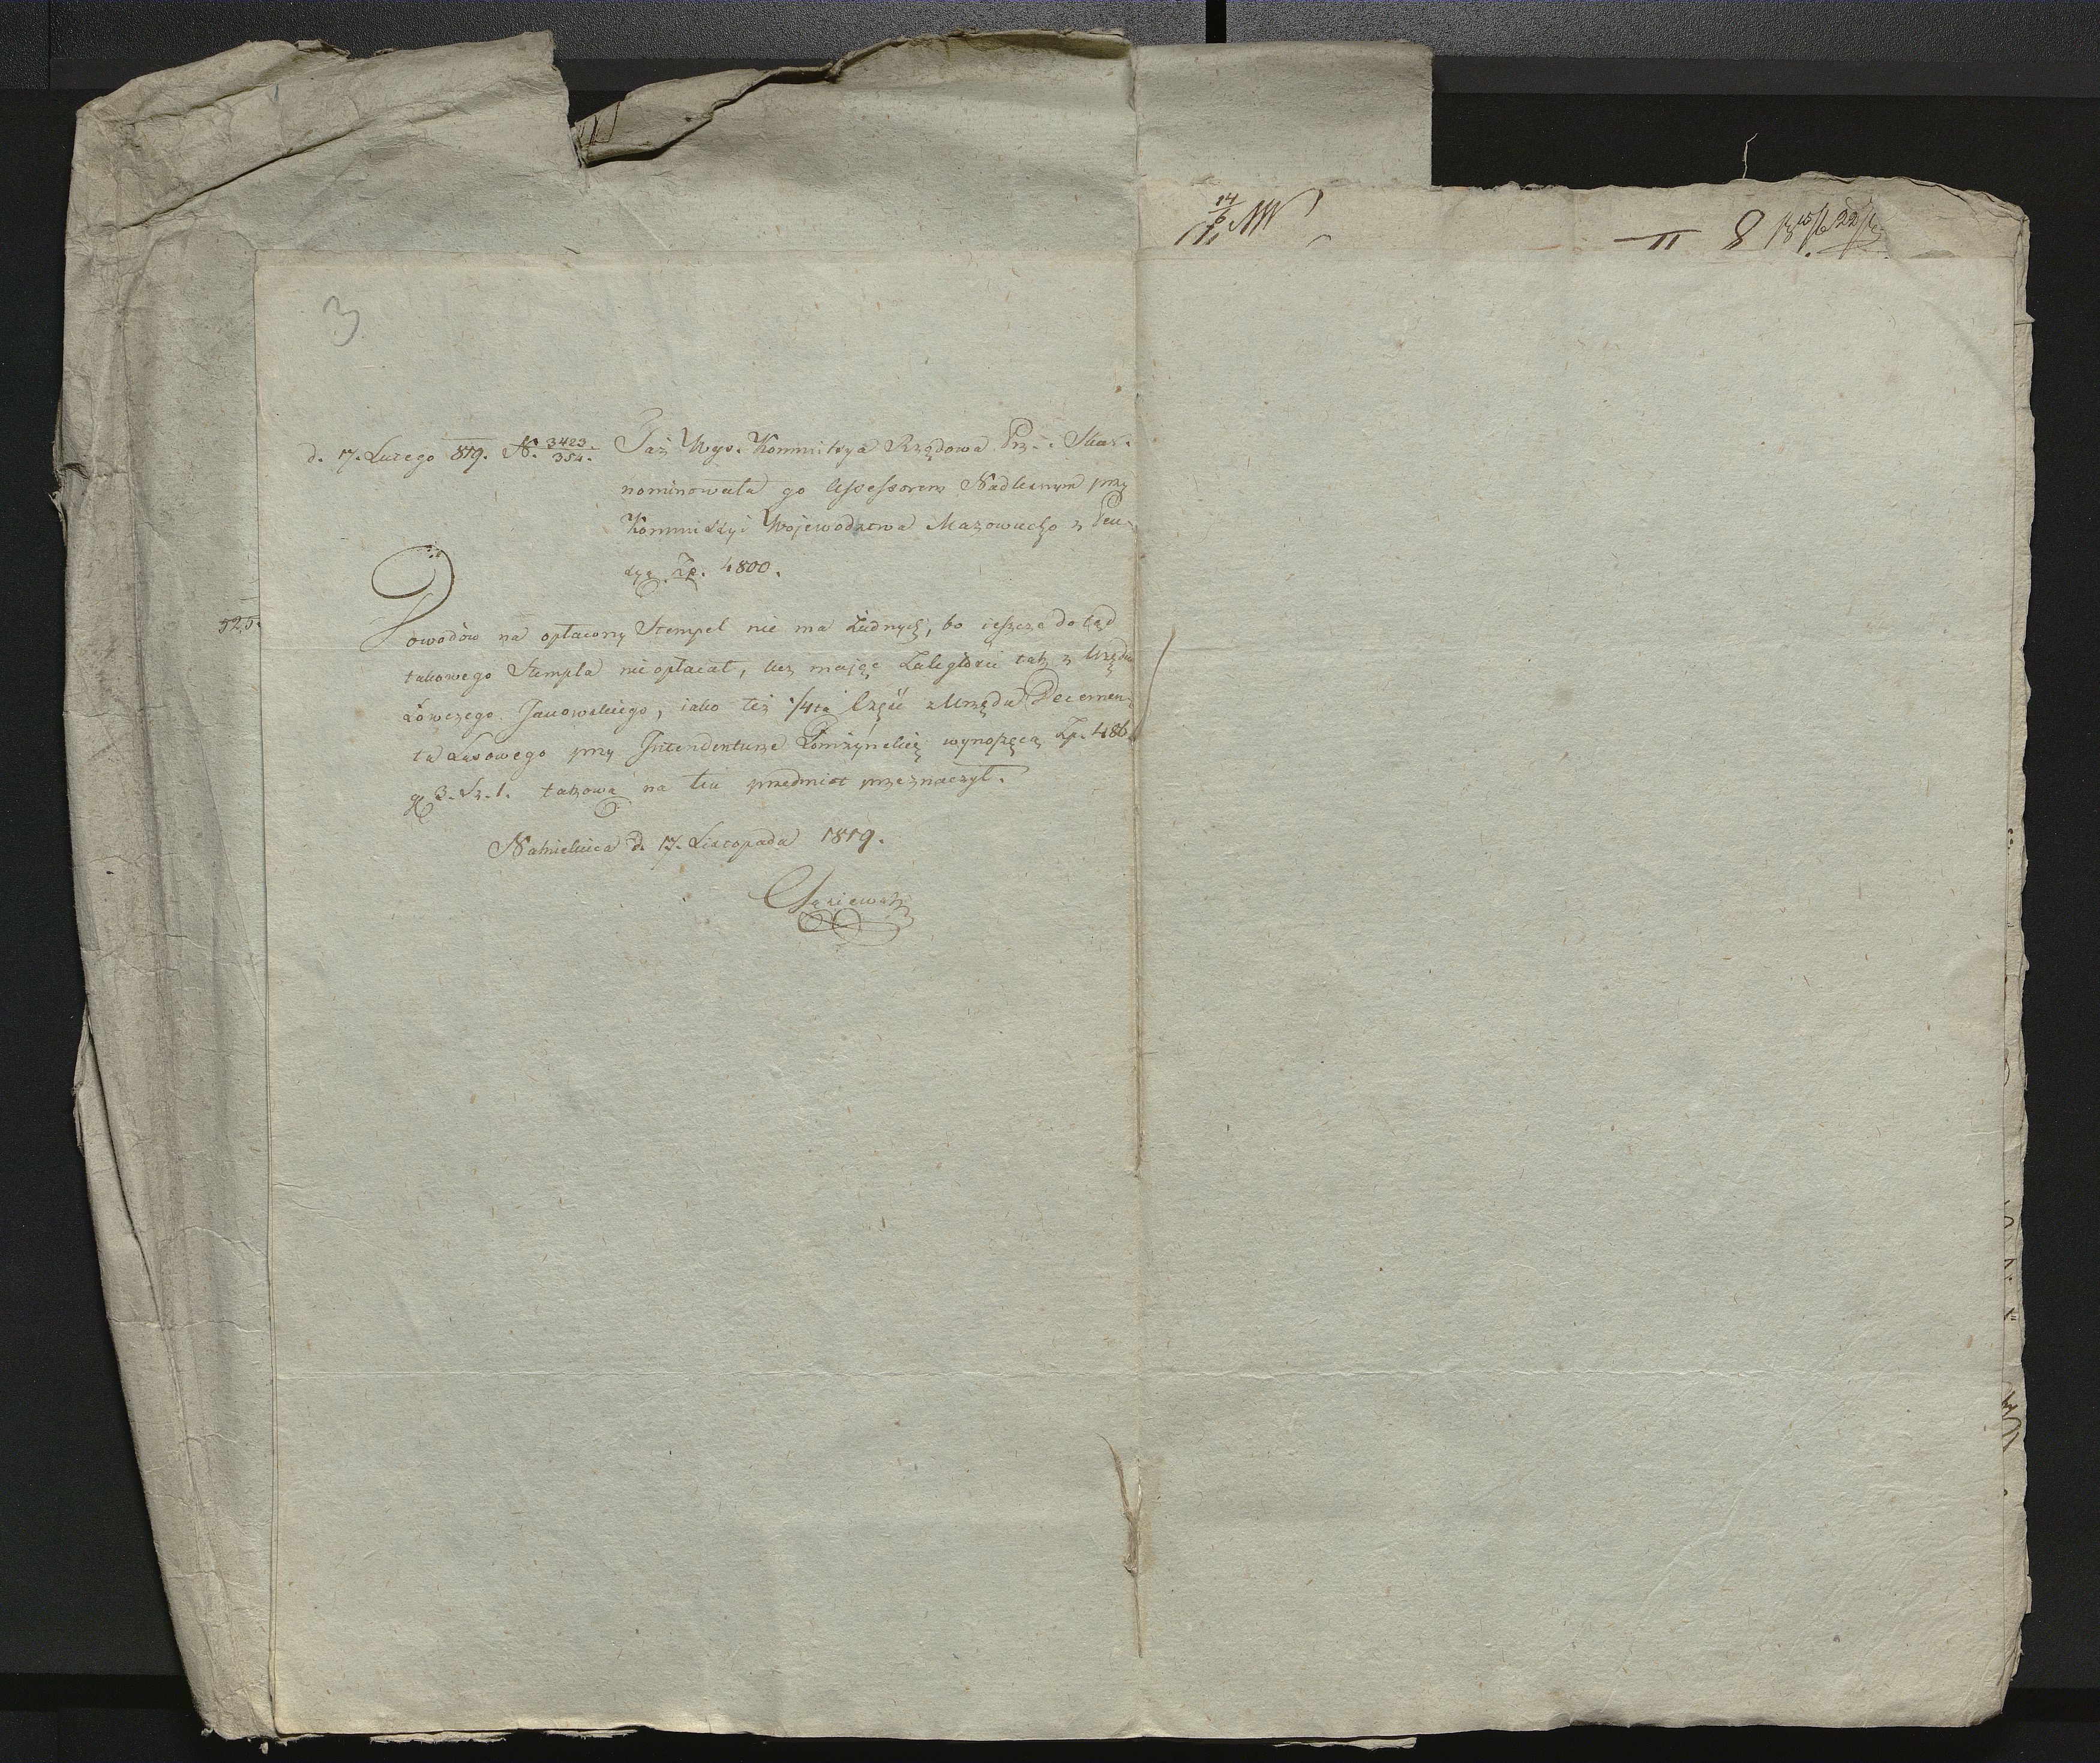 3
d. 17. Lutego 819. N. 3423/354. Taż Wys. Kommissya Rządowa Prz. Skar.
nominowała go Assessorem Nadleśnym przy
Kommissyi Woiewodztwa Mazowieckgo z Pen-
syą Zp. 4800.
525.
Dowodów na opłacony Stempel nie ma żadnych, bo ieszcze dotąd
takowego Stempla nie opłacał, lecz mając Zaległości tak z Urzędu
Łowczego Janowskiego, iako też 1/4tą Część z Urzędu Decernen-
ta Lasowego przy Intendenturze Łomżyńskiey wynoszącą Zp. 486
g 3. Sz. 1. takową na ten przedmiot przeznaczył.
d. 17. Listopada 1819.
14/6
8